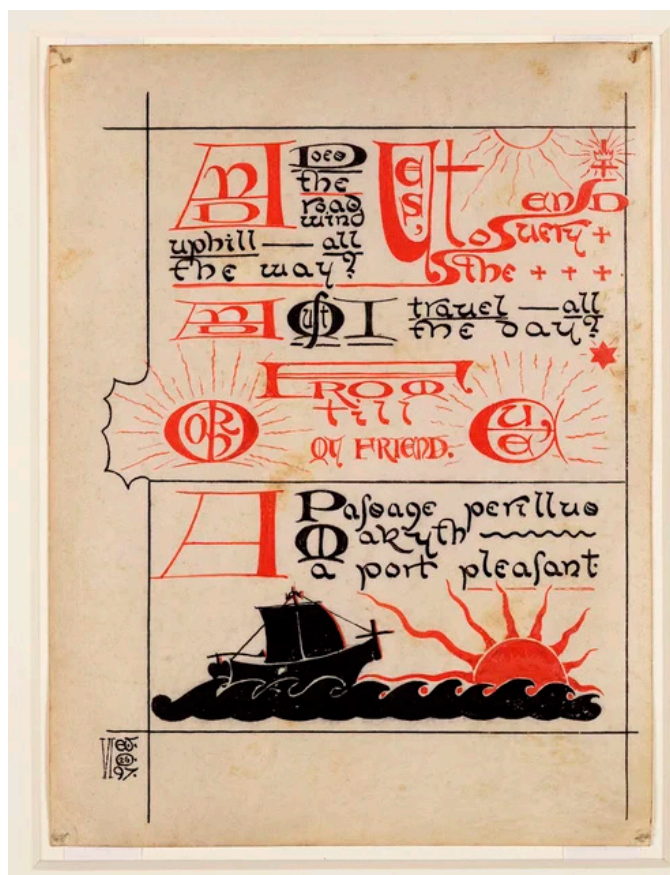 AND Does
the
road
wind
uphill — all
the way?
Yes, to
the uery
end + + + +
AND Must I travel — all
the day?
FROM
MORN till EVE,
MY FRIEND.
A Paſsage perillus
Makyth
a port pleaſant
VI
97.